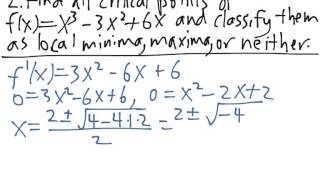 2. Find all critical points of
f(x)=x³-3x²+6x and classify them
as local minima, maxima, or neither.
f'(x)=3x²-6x+6
0=3x²-6x+6, 0=x²-2x+2
x=(2±√(4-4·1·2))/2=2±√-4